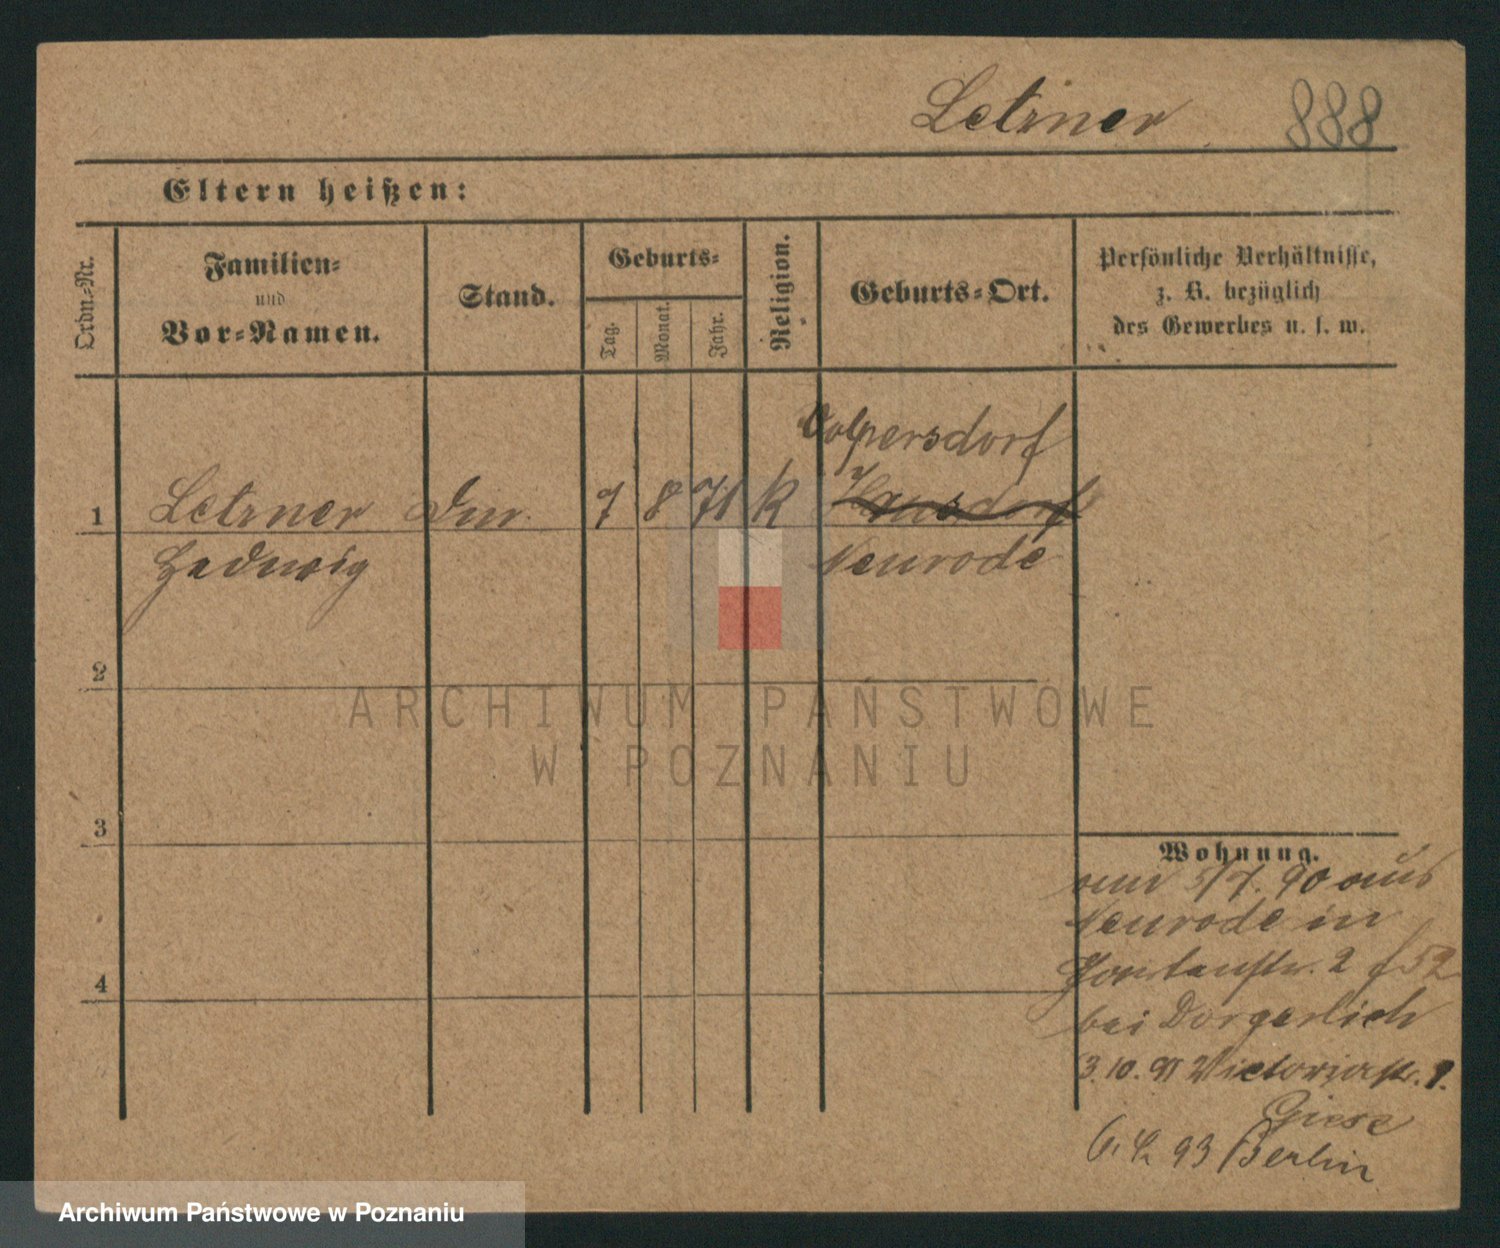 Letzner 888
Eltern heißen:
Ordn.-Nr.
Familien-
und
Vor-Namen.
Stand.
Geburts-
Tag.
Monat.
Jahr.
Religion.
Geburts-Ort.
Persönliche Verhältnisse,
z. B. bezüglich
des Gewerbes u. s. w.
Volpersdorf
1 Letzner 7 8 71 k Hausdorf
Hedwig Neurode
2
3
4
Wohnung.
5/7. 90 aus
Neurode in
2
bei Dorgerlich
3.10. 91 Victoriastr.
Giese
93 Berlin
ARCHIWUM PAŃSTWOWE
W POZNANIU
Archiwum Państwowe w Poznaniu